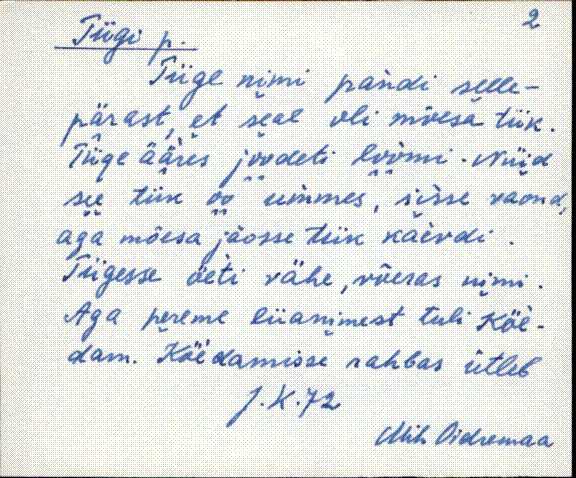 2
Tiigi p.
Tiige nimi pàndi selle-
pärast, et seal oli mõesa tiik.
Tiige ääres joodeti loomi. Nüid
see tiik oo ummes, sisse vaond,
aga mõesa jäosse tiik käevdi.
Tiigesse öeti vähe, võeras nimi.
Aga pereme liianimest tuli Köe-
dam. Köedamisse rahbas ütleb
J.K.72
Mih. Oidremaa